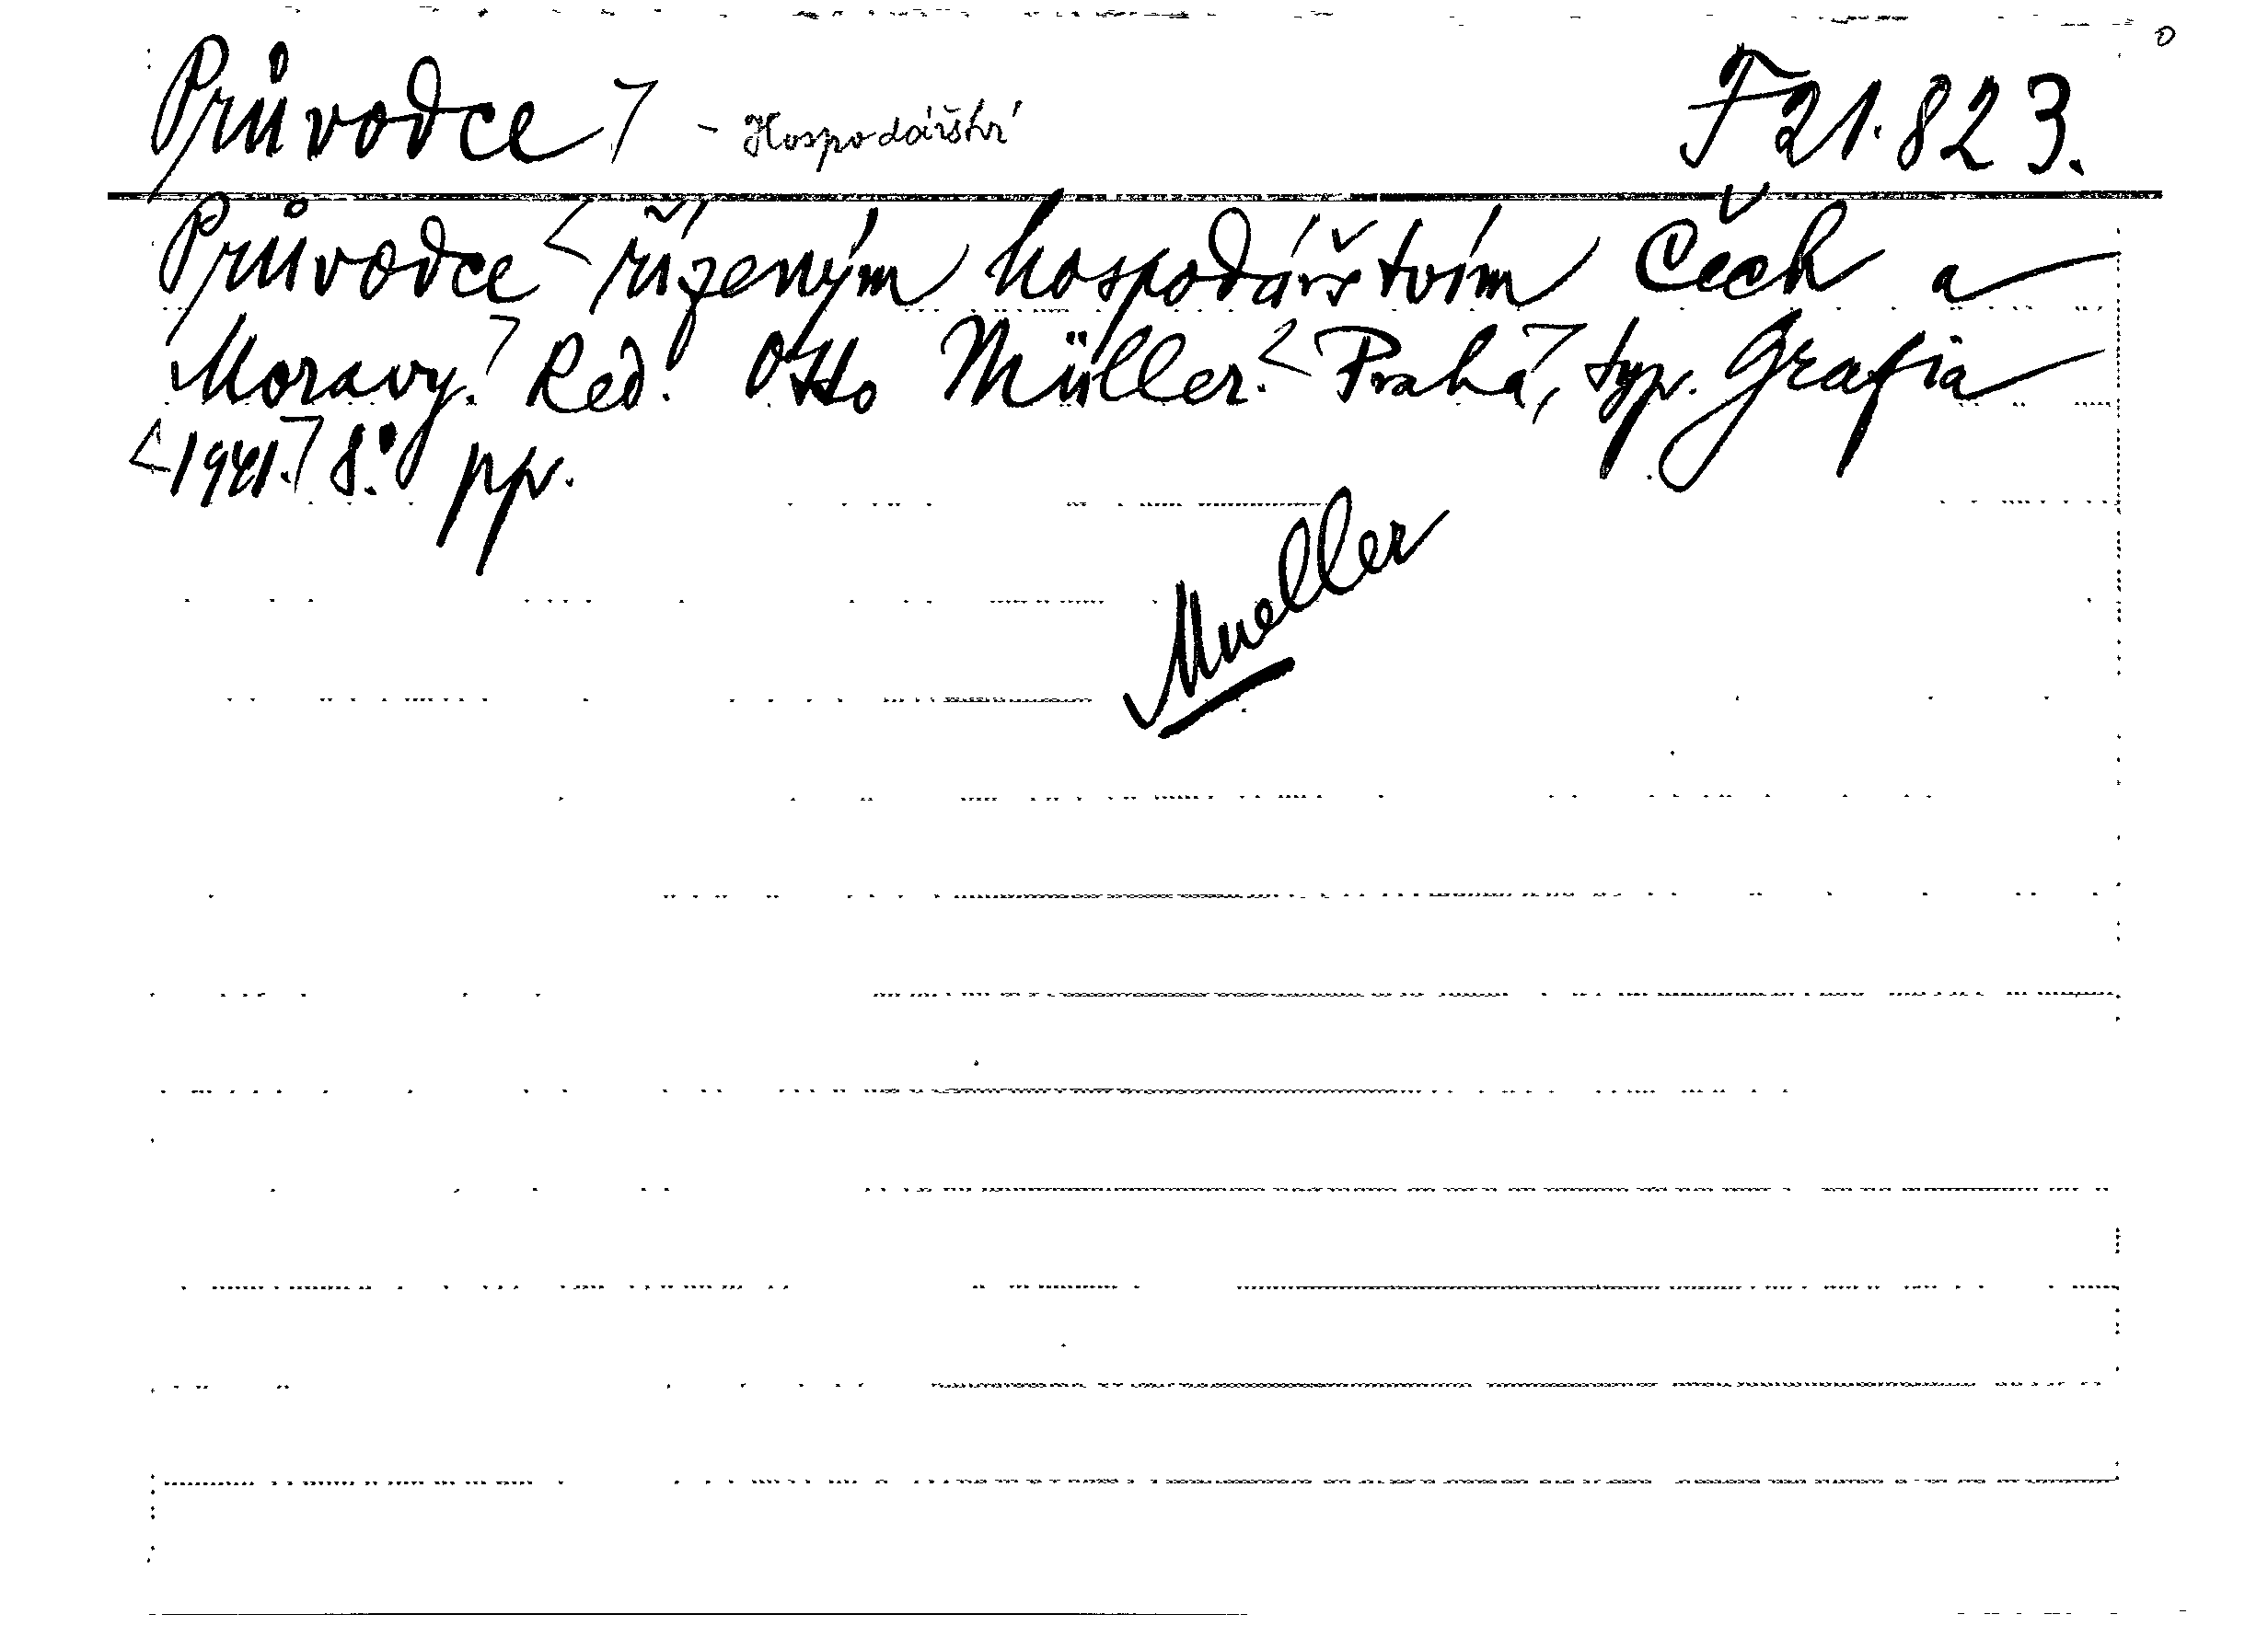 Průvodce7 - Hospodářství F 21.823.
Průvodce < řízeným hospodářstvím Čech a
Moravy.7 Red. Otto Müller.< Praha7, typ. Grafia
<1941.7 8.° pp.
Mueller